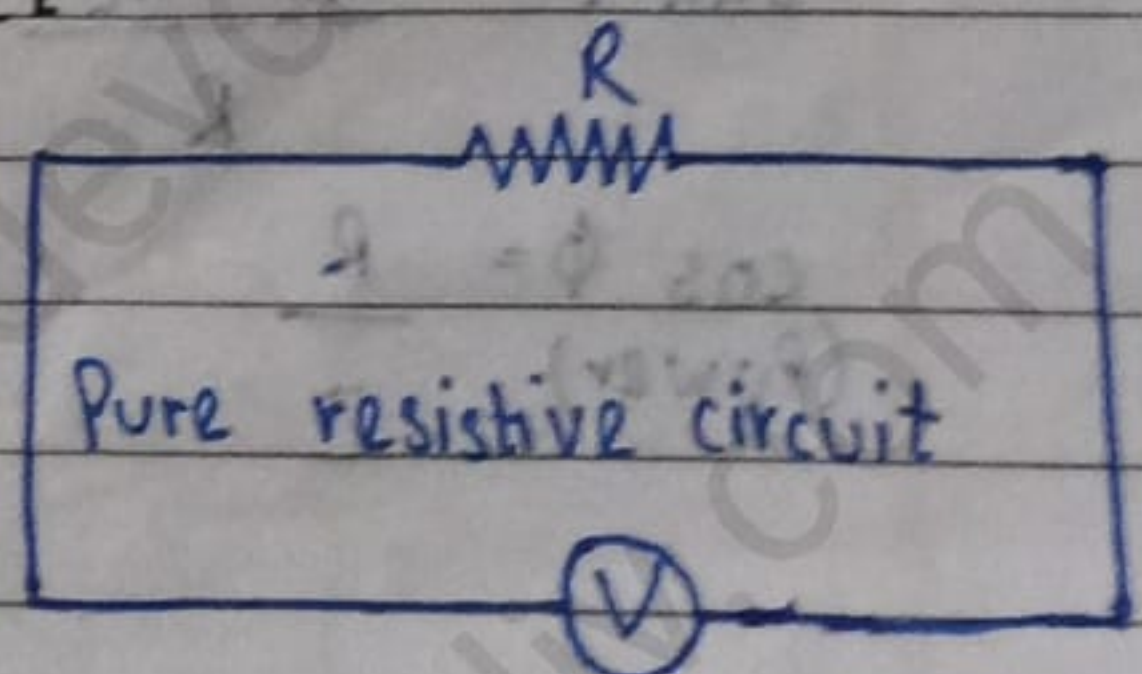 R
Pure resistive circuit
V